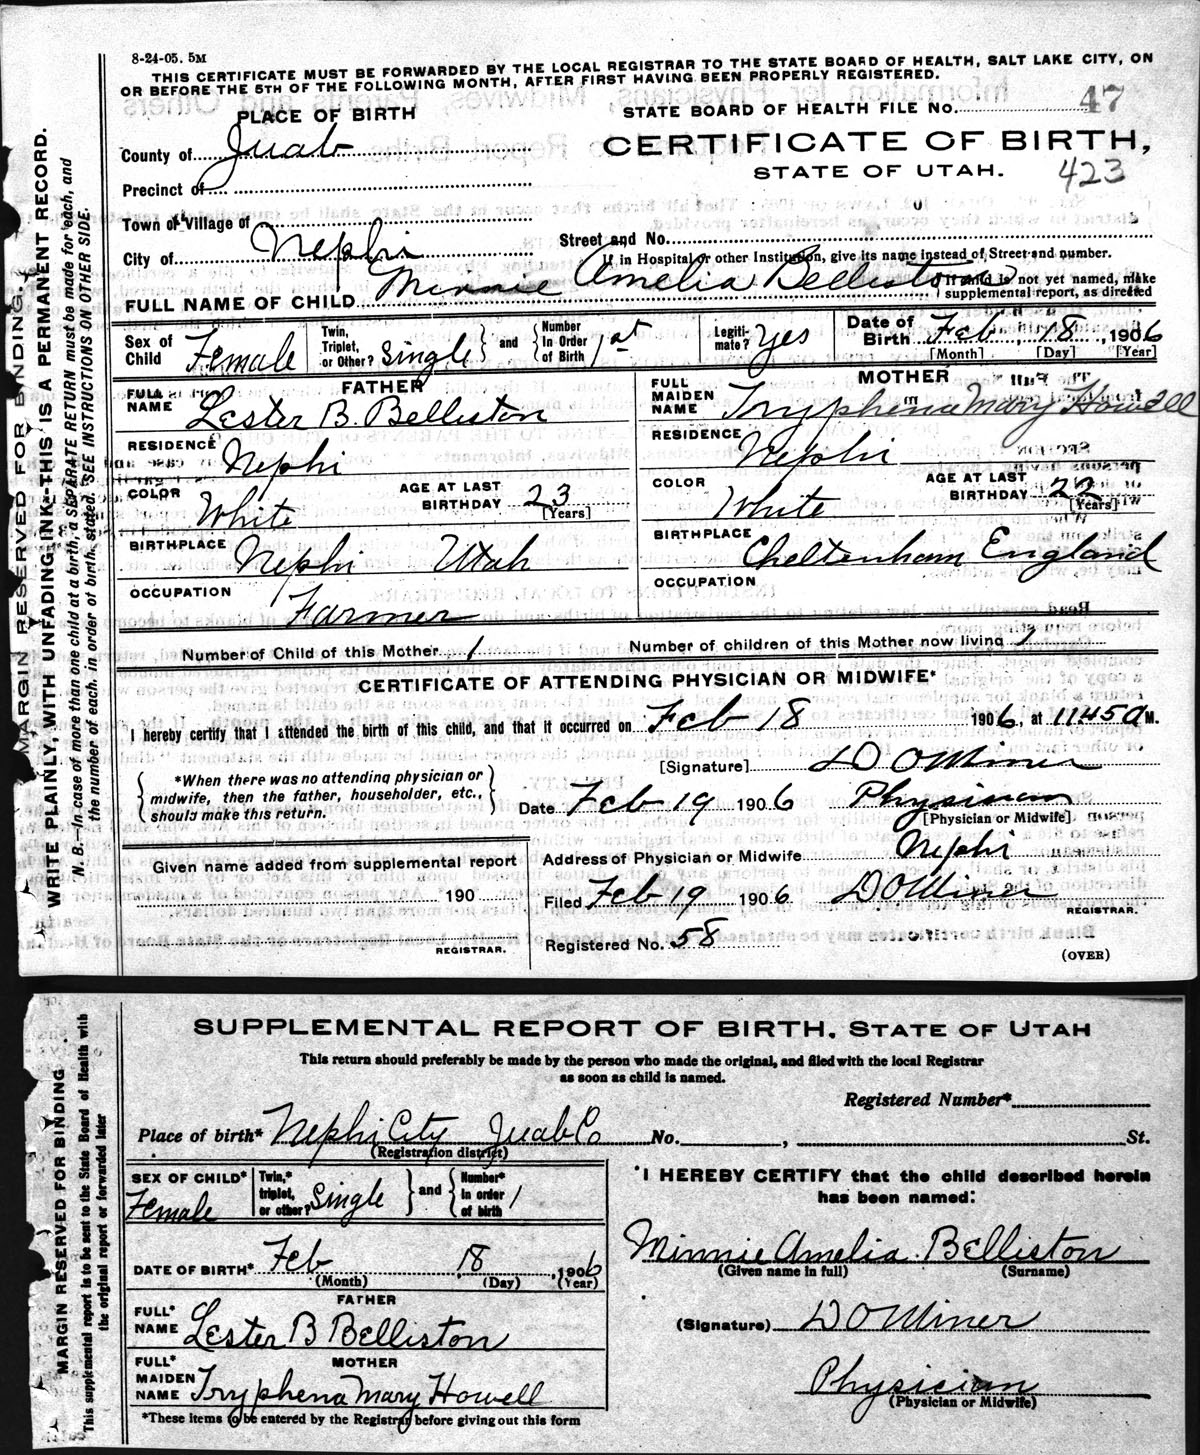 8-24-05. 5M
THIS CERTIFICATE MUST BE FORWARDED BY THE LOCAL REGISTRAR TO THE STATE BOARD OF HEALTH, SALT LAKE CITY, ON
OR BEFORE THE 5TH OF THE FOLLOWING MONTH, AFTER FIRST HAVING BEEN PROPERLY REGISTERED.
PLACE OF BIRTH
STATE BOARD OF HEALTH FILE NO. 47
County of Juab
CERTIFICATE OF BIRTH,
Precinct of
STATE OF UTAH. 423
Town or Village of
Street and No.
City of Nephi
If in Hospital or other Institution, give its name instead of Street and number.
FULL NAME OF CHILD Minnie Amelia Belliston
If child is not yet named, make
supplemental report, as directed
Sex of Child Female
Twin, Triplet, or Other? Single } and { Number In Order of Birth 1st
Legiti- mate? yes
Date of Birth Feb 18, 1906
[Month] [Day] [Year]
FATHER
FULL NAME Lester B. Belliston
RESIDENCE Nephi
COLOR White
AGE AT LAST BIRTHDAY 23
[Years]
BIRTHPLACE Nephi Utah
OCCUPATION Farmer
MOTHER
FULL MAIDEN NAME Tryphena Mary Howell
RESIDENCE Nephi
COLOR White
AGE AT LAST BIRTHDAY 22
[Years]
BIRTHPLACE Cheltenham England
OCCUPATION
Number of Child of this Mother 1
Number of children of this Mother now living 1
CERTIFICATE OF ATTENDING PHYSICIAN OR MIDWIFE*
I hereby certify that I attended the birth of this child, and that it occurred on Feb 18 1906, at 1145 A M.
*When there was no attending physician or
midwife, then the father, householder, etc.,
should make this return.
[Signature] D O Miner
Date Feb 19 1906 Physician
[Physician or Midwife]
Given name added from supplemental report
190
REGISTRAR.
Address of Physician or Midwife Nephi
Filed Feb 19 1906 D O Miner
REGISTRAR.
Registered No. 58
(OVER)
MARGIN RESERVED FOR BINDING.
WRITE PLAINLY, WITH UNFADING INK--THIS IS A PERMANENT RECORD.
N. B.—In case of more than one child at a birth, a SEPARATE RETURN must be made for each, and
the number of each, in order of birth, stated. SEE INSTRUCTIONS ON OTHER SIDE.
SUPPLEMENTAL REPORT OF BIRTH, STATE OF UTAH
This return should preferably be made by the person who made the original, and filed with the local Registrar
as soon as child is named.
Registered Number*
Place of birth* Nephi City Juab Co No. , St.
(Registration district)
SEX OF CHILD* Female
Twin,* triplet, or other? Single } and { Number* in order of birth 1
DATE OF BIRTH* Feb 18, 1906
(Month) (Day) (Year)
FATHER
FULL* NAME Lester B Belliston
MOTHER
FULL* MAIDEN NAME Tryphena Mary Howell
*These items to be entered by the Registrar before giving out this form
I HEREBY CERTIFY that the child described herein
has been named:
Minnie Amelia Belliston
(Given name in full) (Surname)
(Signature) D O Miner
Physician
(Physician or Midwife)
MARGIN RESERVED FOR BINDING
This supplemental report is to be sent to the State Board of Health with
the original report or forwarded later